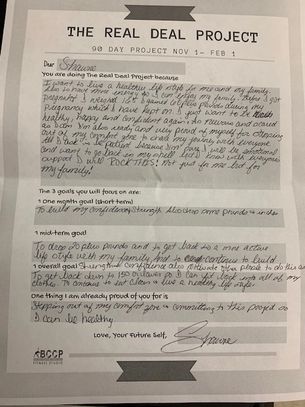 THE REAL DEAL PROJECT
90 DAY PROJECT NOV 1- FEB 1
Dear Shawne
You are doing The Real Deal Project because
I want to live a healthier life style for me and my family.
Also to have more energy so I can enjoy my family. Before I got
pregnant I weighed 155 I gained pounds during my
pregnancy which I have kept on. I just want to be
healthy, happy and confident again. I'm nervous and scared
as I am also ready and very proud of myself for stepping
out of my comfort zone to share my journey with everyone
because I'm I will be emotional
and want to go back in my shell but I know with everyones
support I will ROCK THIS! Not just for me but for
my family!
The 3 goals you will focus on are:
1 one month goal (short term)
To build my confidence/strength also drop some pounds
1 mid-term goal
To drop 20 plus pounds and to get back to a more active
life style with my family and to continue to build
1 overall goal strength and confidence also
To get back down to 150 or lower so I can fit back into all of my
clothes. To continue to eat clean & live a healthy life style
One thing I am already proud of you for is
Stepping out of my comfort zone & committing to this project so
I can be healthy
Love, Your Future Self, Shawne
BCCP
FITNESS STUDIO